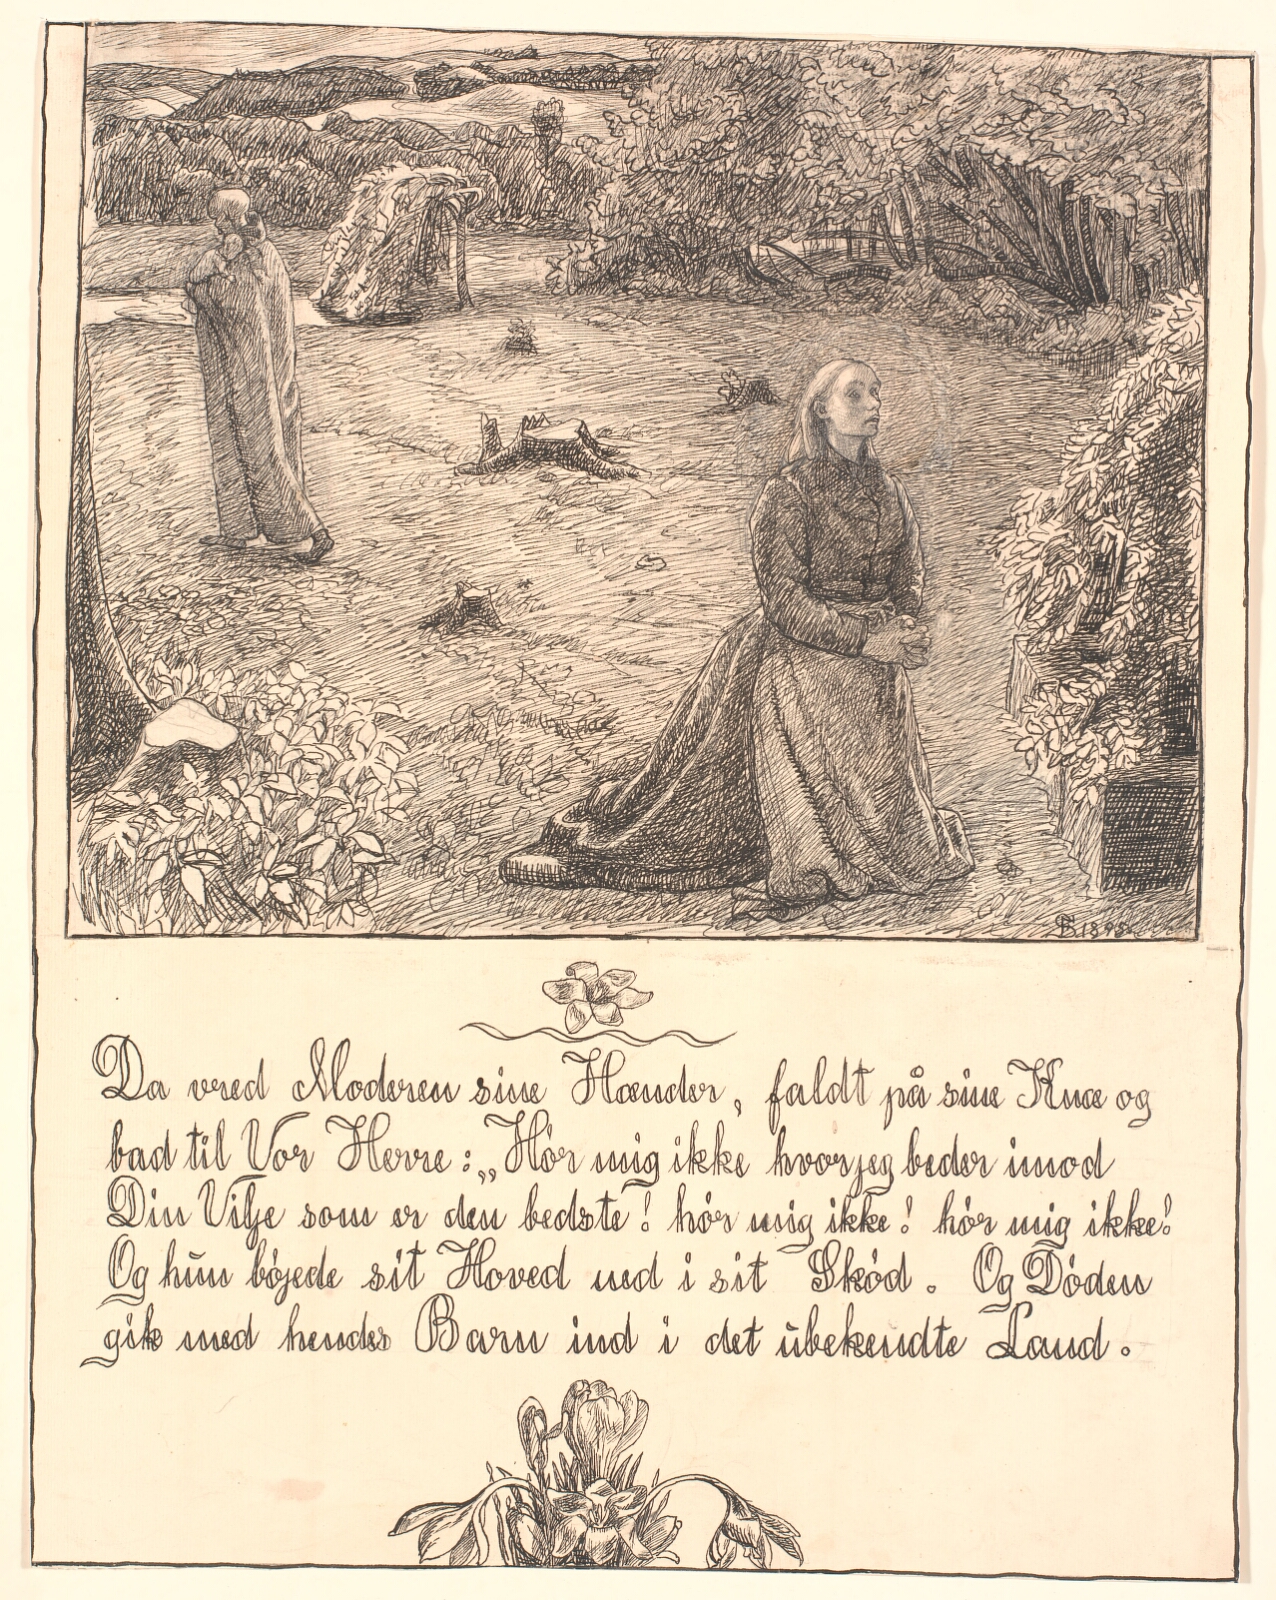 1895
Da vred Moderen sine Hænder, faldt på sine Knæ og
bad til Vor Herre: „Hör mig ikke hvor jeg beder imod
Din Vilje som er den bedste! hör mig ikke! hör mig ikke!
Og hun böjede sit Hoved ned i sit Sköd. Og Döden
gik med hendes Barn ind i det ubekendte Land.